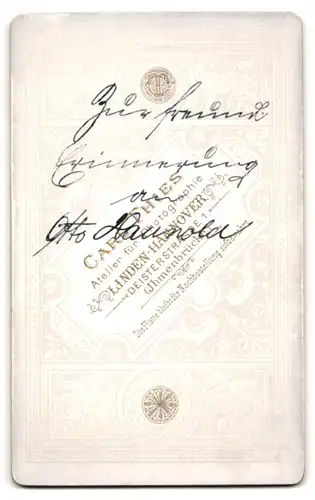 Zur freund.
Erinnerung
an
Otto Hausold
CARL THIES
Atelier für Photographie
LINDEN-HANNOVER
DEISTERSTRASSE 1
(Ihmenbrücke)
Die Platte bleibt für Nachbestellung aufbewahrt.